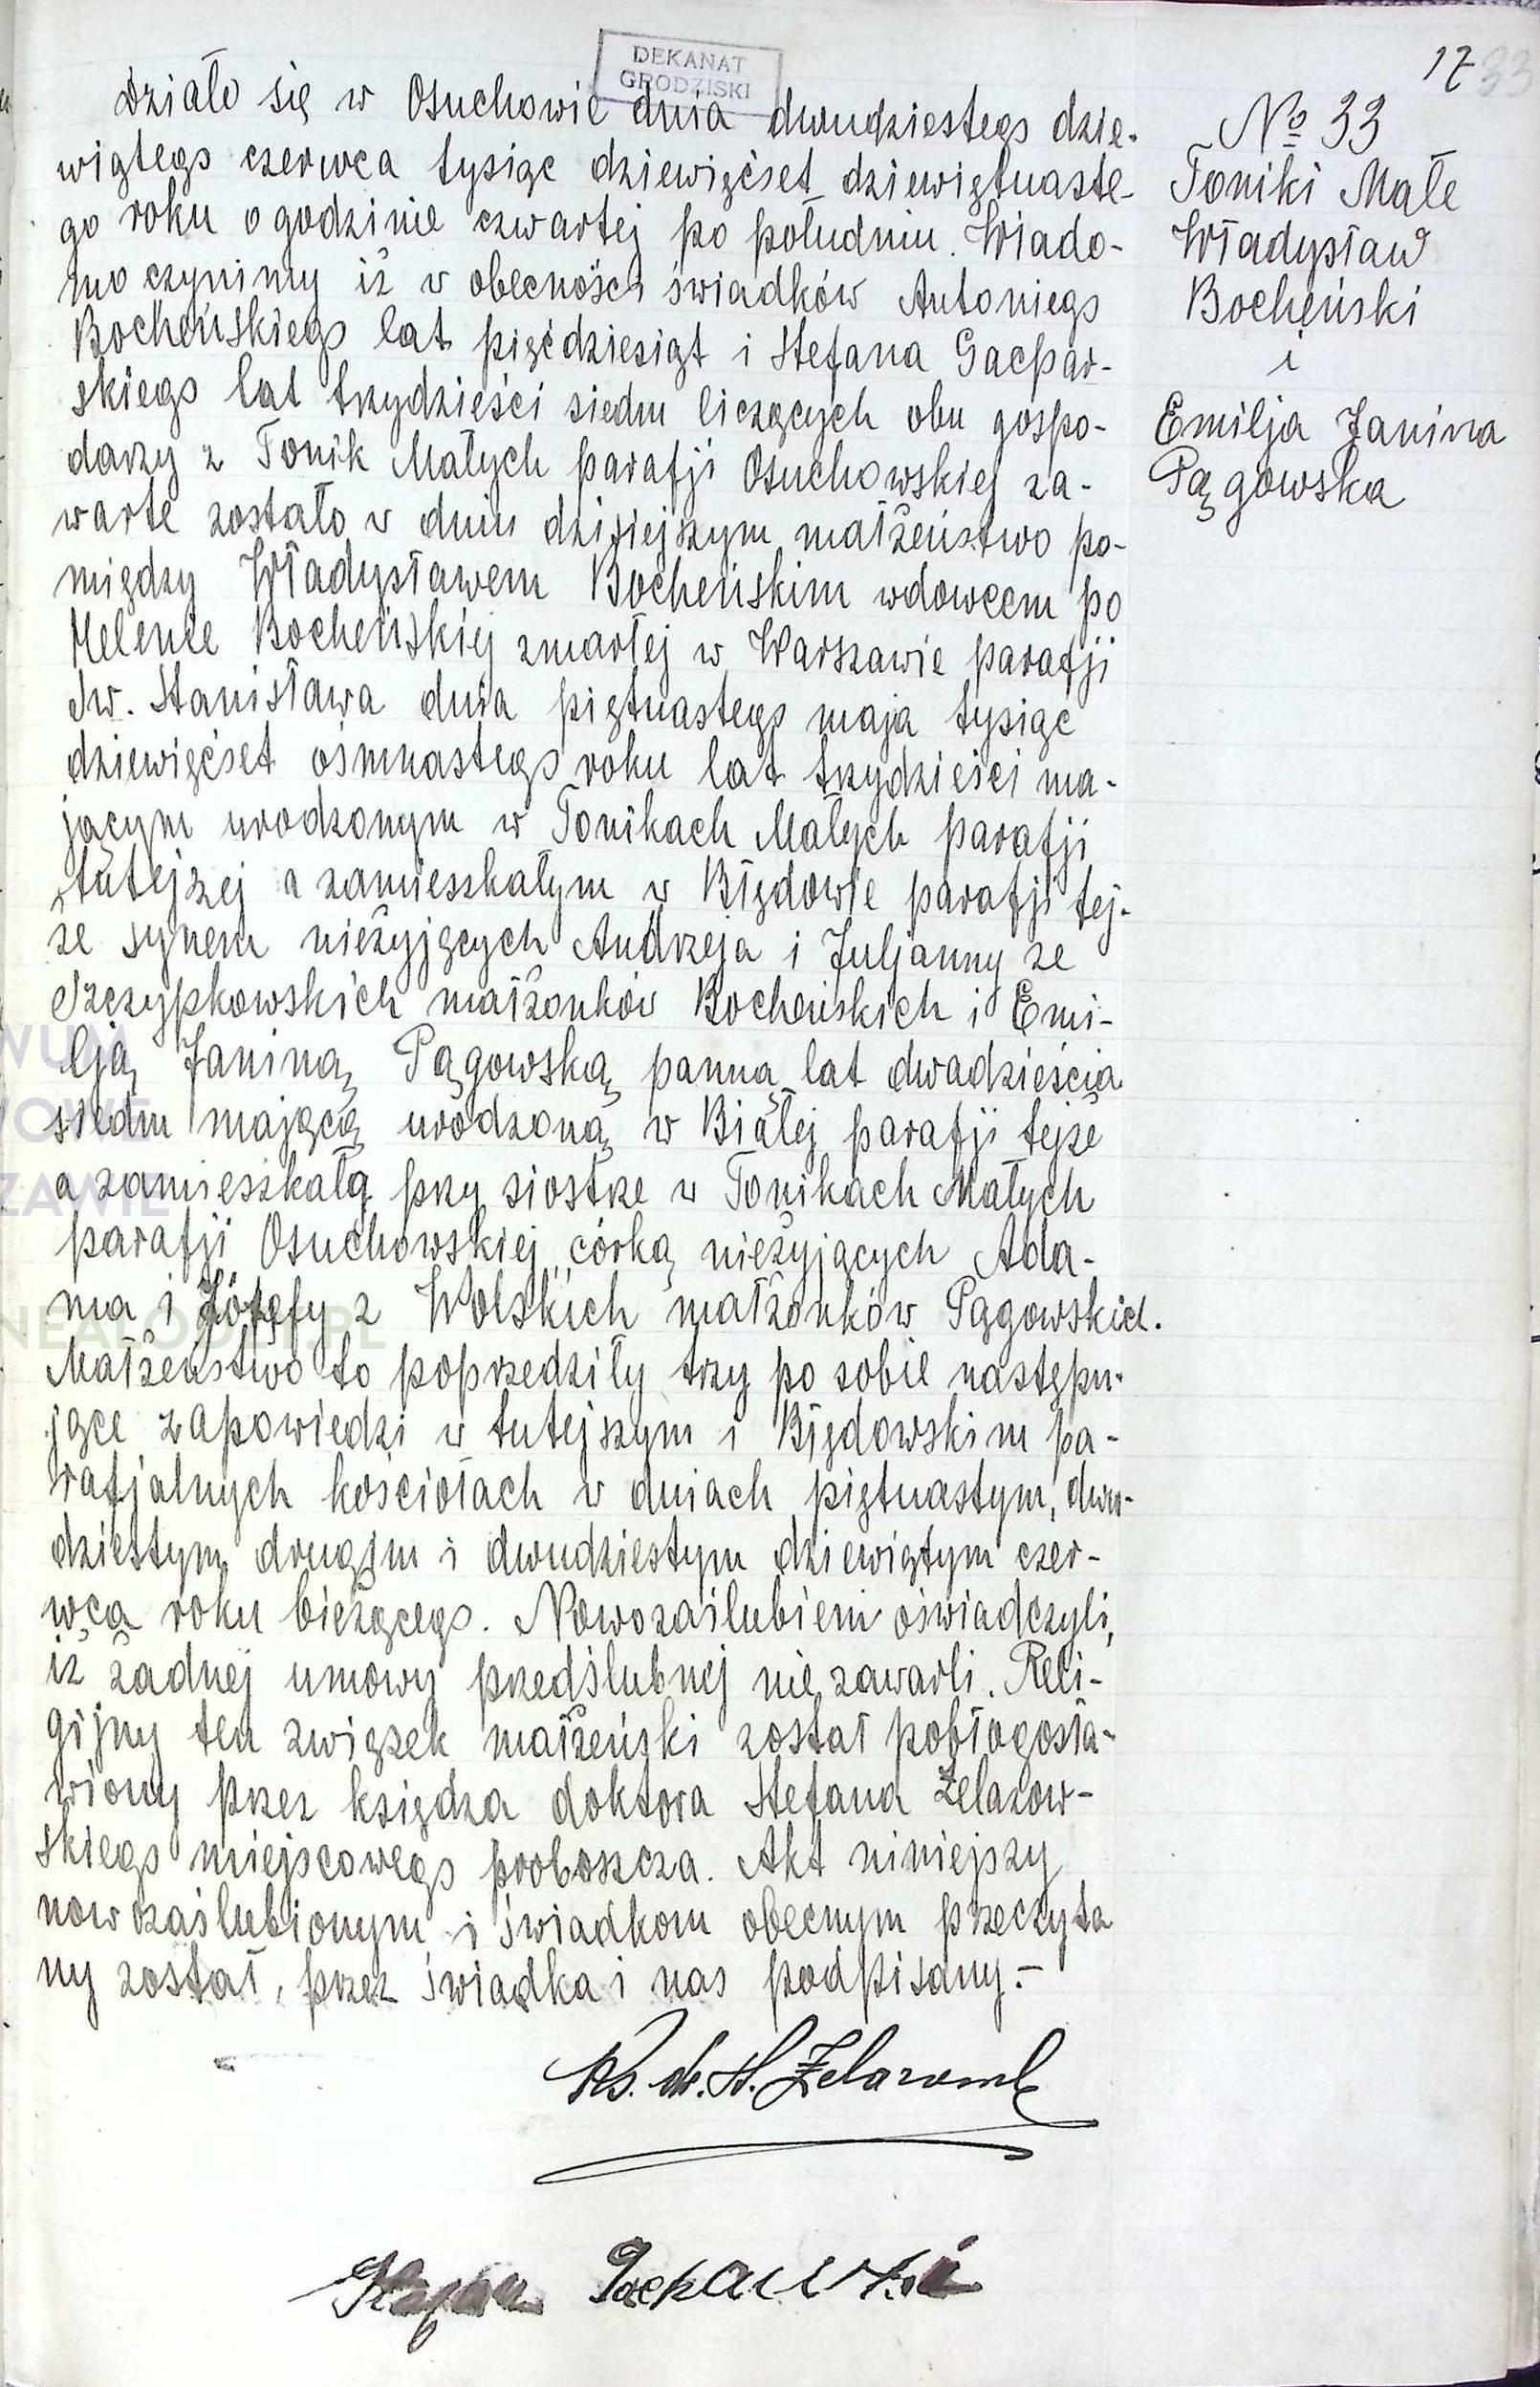 DEKANAT
GRODZISKI
17
33
Działo się w Osuchowie dnia dwudziestego dzie-
wiątego czerwca tysiąc dziewięćset dziewiętnaste-
go roku o godzinie czwartej po południu. Wiado-
mo czynimy iż w obecności świadków Antoniego
Bocheńskiego lat pięćdziesiąt i Stefana Gacpar-
skiego lat trzydzieści siedm liczących obu gospo-
darzy z Tonik Małych parafji Osuchowskiej za-
warte zostało w dniu dzisiejszym małżeństwo po-
między Władysławem Bocheńskim wdowcem po
Helenie Bocheńskiej zmarłej w Warszawie parafji
św. Stanisława dnia piętnastego maja tysiąc
dziewięćset ośmnastego roku lat trzydzieści ma-
jącym urodzonym w Tonikach Małych parafji
tutejszej a zamieszkałym w Błędowie parafji tej-
że synem nieżyjących Andrzeja i Juljanny ze
Szczypkowskich małżonków Bocheńskich i Emi-
lją Janiną Pągowską panną lat dwadzieścia
siedm mającą urodzoną w Białej parafji tejże
a zamieszkałą przy siostrze w Tonikach Małych
parafji Osuchowskiej, córką nieżyjących Ada-
ma i Józefy z Wolskich małżonków Pągowskich.
Małżeństwo to poprzedziły trzy po sobie następu-
jące zapowiedzi w tutejszym i Błędowskim pa-
rafjalnych kościołach w dniach piętnastym, dwu-
dziestym drugim i dwudziestym dziewiątym czer-
wca roku bieżącego. Nowozaślubieni oświadczyli,
iż żadnej umowy przedślubnej nie zawarli. Reli-
gijny ten związek małżeński został pobłogosła-
wiony przez księdza doktora Stefana Żelazow-
skiego miejscowego proboszcza. Akt niniejszy
nowozaślubionym i świadkom obecnym przeczyta
ny został, przez świadka i nas podpisany.-
Ks. dr. St. Żelazowski
No 33
Toniki Małe
Władysław
Bocheński
i
Emilja Janina
Pągowska